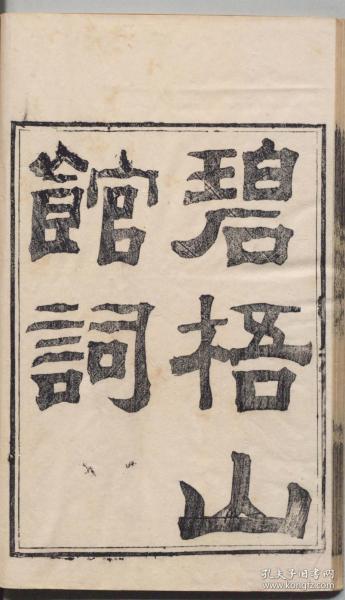 碧梧山
館詞
孔夫子旧书网
www.kongfz.com